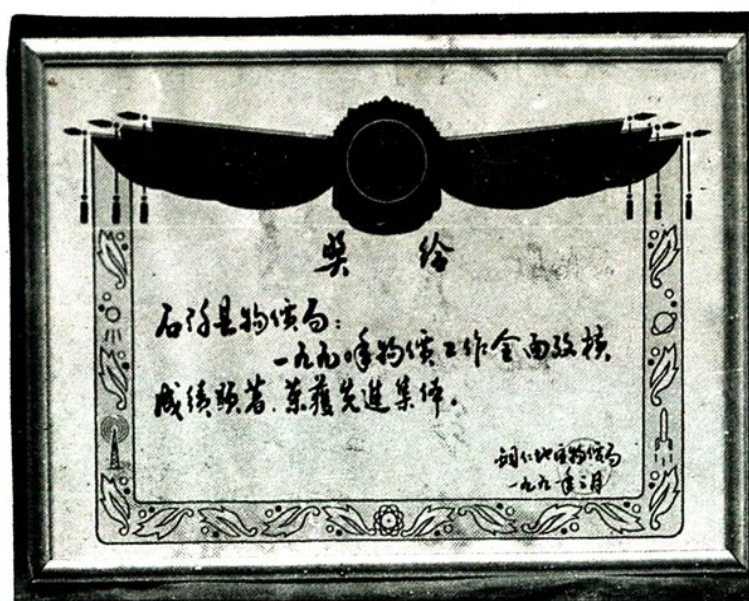 奖给
石阡县物价局:
一九九〇年物价工作全面考核
成绩显著.荣获先进集体。
铜仁地区物价局
一九九一年二月